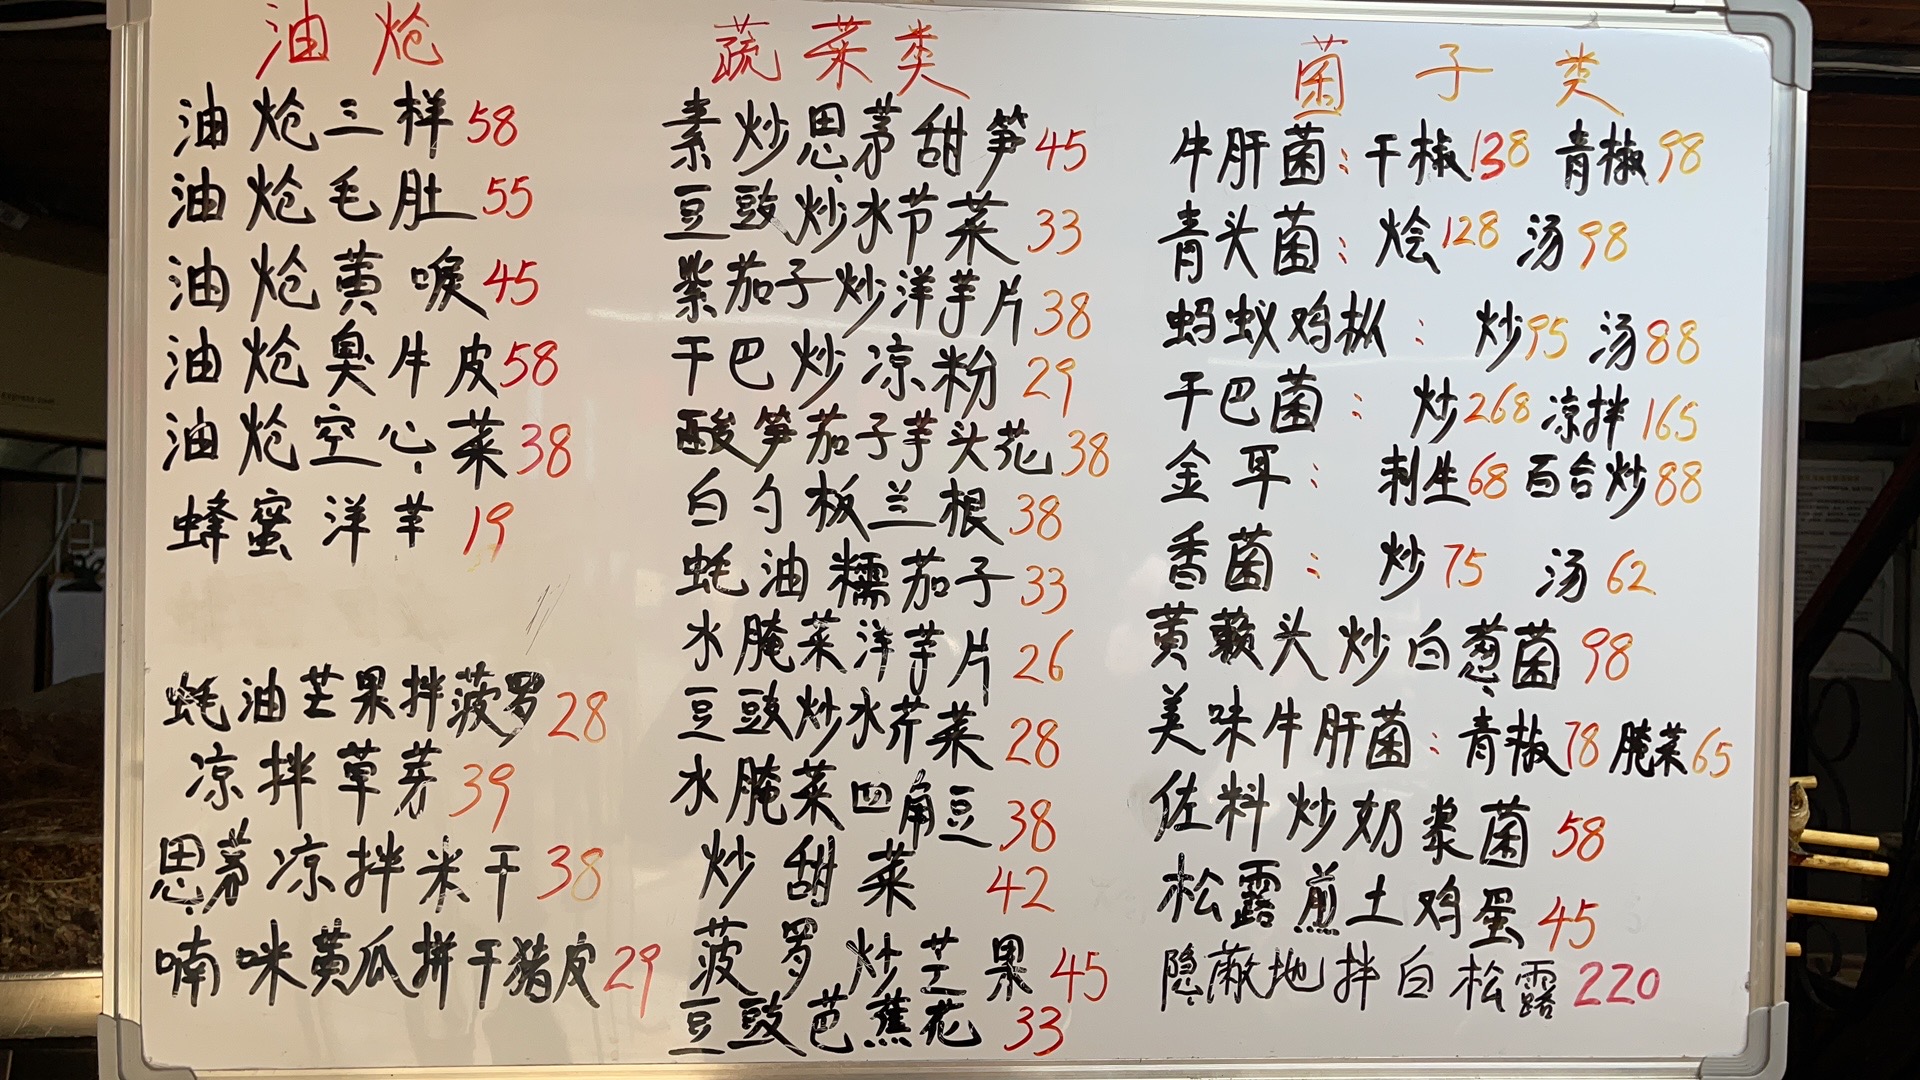 油炝
油炝三样58
油炝毛肚55
油炝黄喉45
油炝臭牛皮58
油炝空心菜38
蜂蜜洋芋19
蚝油芒果拌菠罗28
凉拌草芽39
思茅凉拌米干38
喃咪黄瓜拼干猪皮29
蔬菜类
素炒思茅甜笋45
豆豉炒水节菜33
紫茄子炒洋芋片38
干巴炒凉粉29
酸笋茄子芋头花38
白勺板兰根38
蚝油糯茄子33
水腌菜洋芋片26
豆豉炒水芹菜28
水腌菜四角豆38
炒甜菜42
菠罗炒芒果45
豆豉芭蕉花33
菌子类
牛肝菌:干椒138 青椒98
青头菌:烩128 汤98
蚂蚁鸡枞:炒95 汤88
干巴菌:炒268 凉拌165
金耳:刺生68 百合炒88
香菌:炒75 汤62
黄藾头炒白葱菌98
美味牛肝菌:青椒78 腌菜65
佐料炒奶浆菌58
松露煎土鸡蛋45
隐蔽地拌白松露220